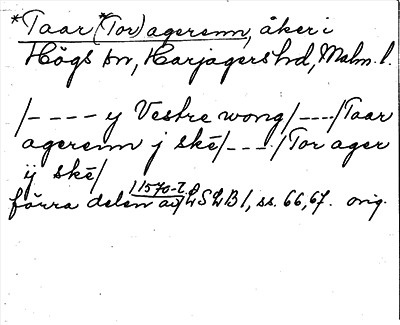 *Taar (*Tor) agerenn, åker i
Högs sn, Harjagers hd, Malm. l.
/- - - - y Vestre wong/- - -/Taar
agerenn j skē/- - -/Tor ager
ij skē/
förra delen av 1570-t. LSLB 1, ss. 66, 67. orig.